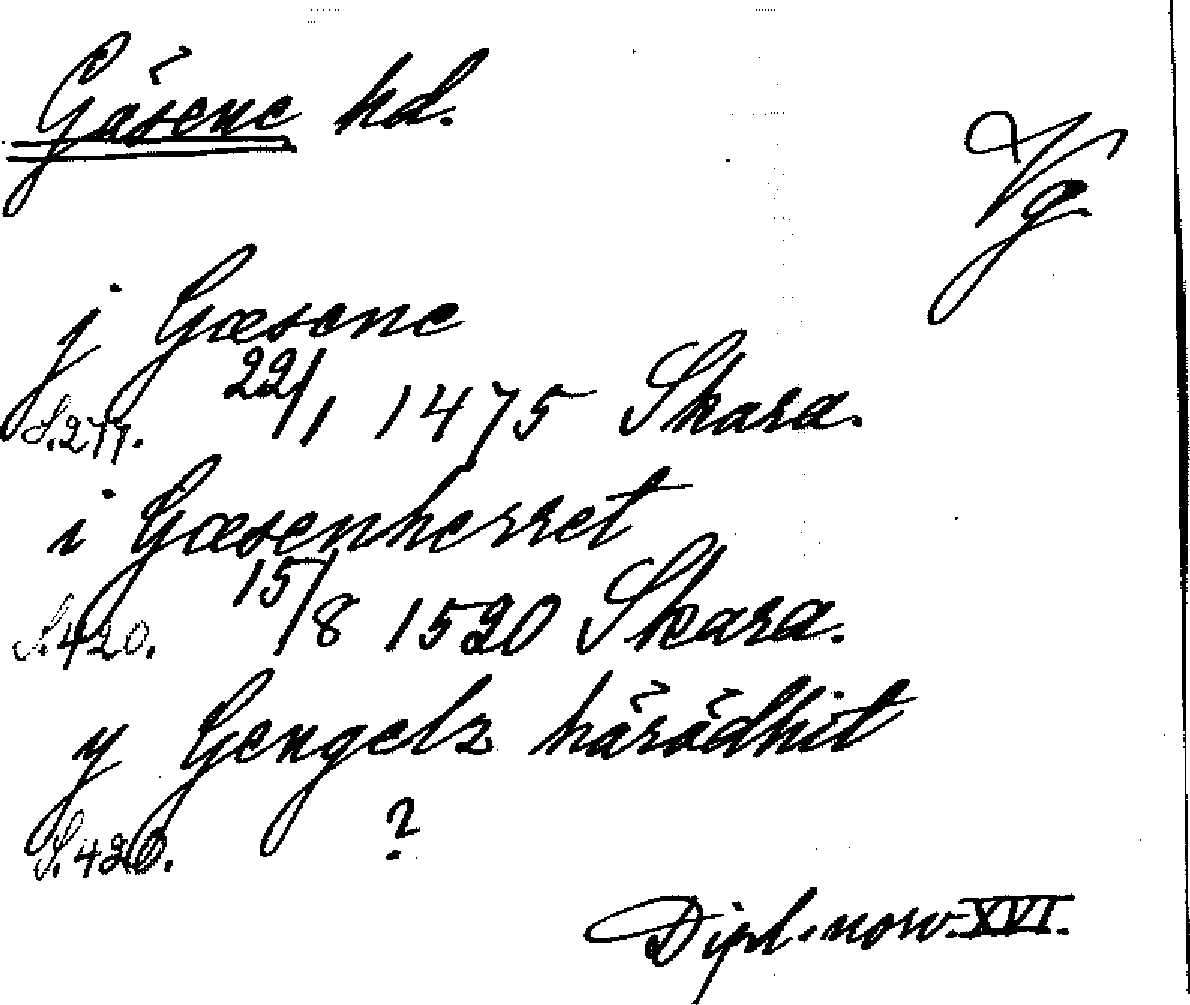 Gäsene hd.
Vg.
j Gæsene
S.277. 22/1 1475 Skara.
i Gæsenherret
S.420. 15/8 1520 Skara.
y Gengelz härädhit
S.420. ?
Dipl. norv. XVI.